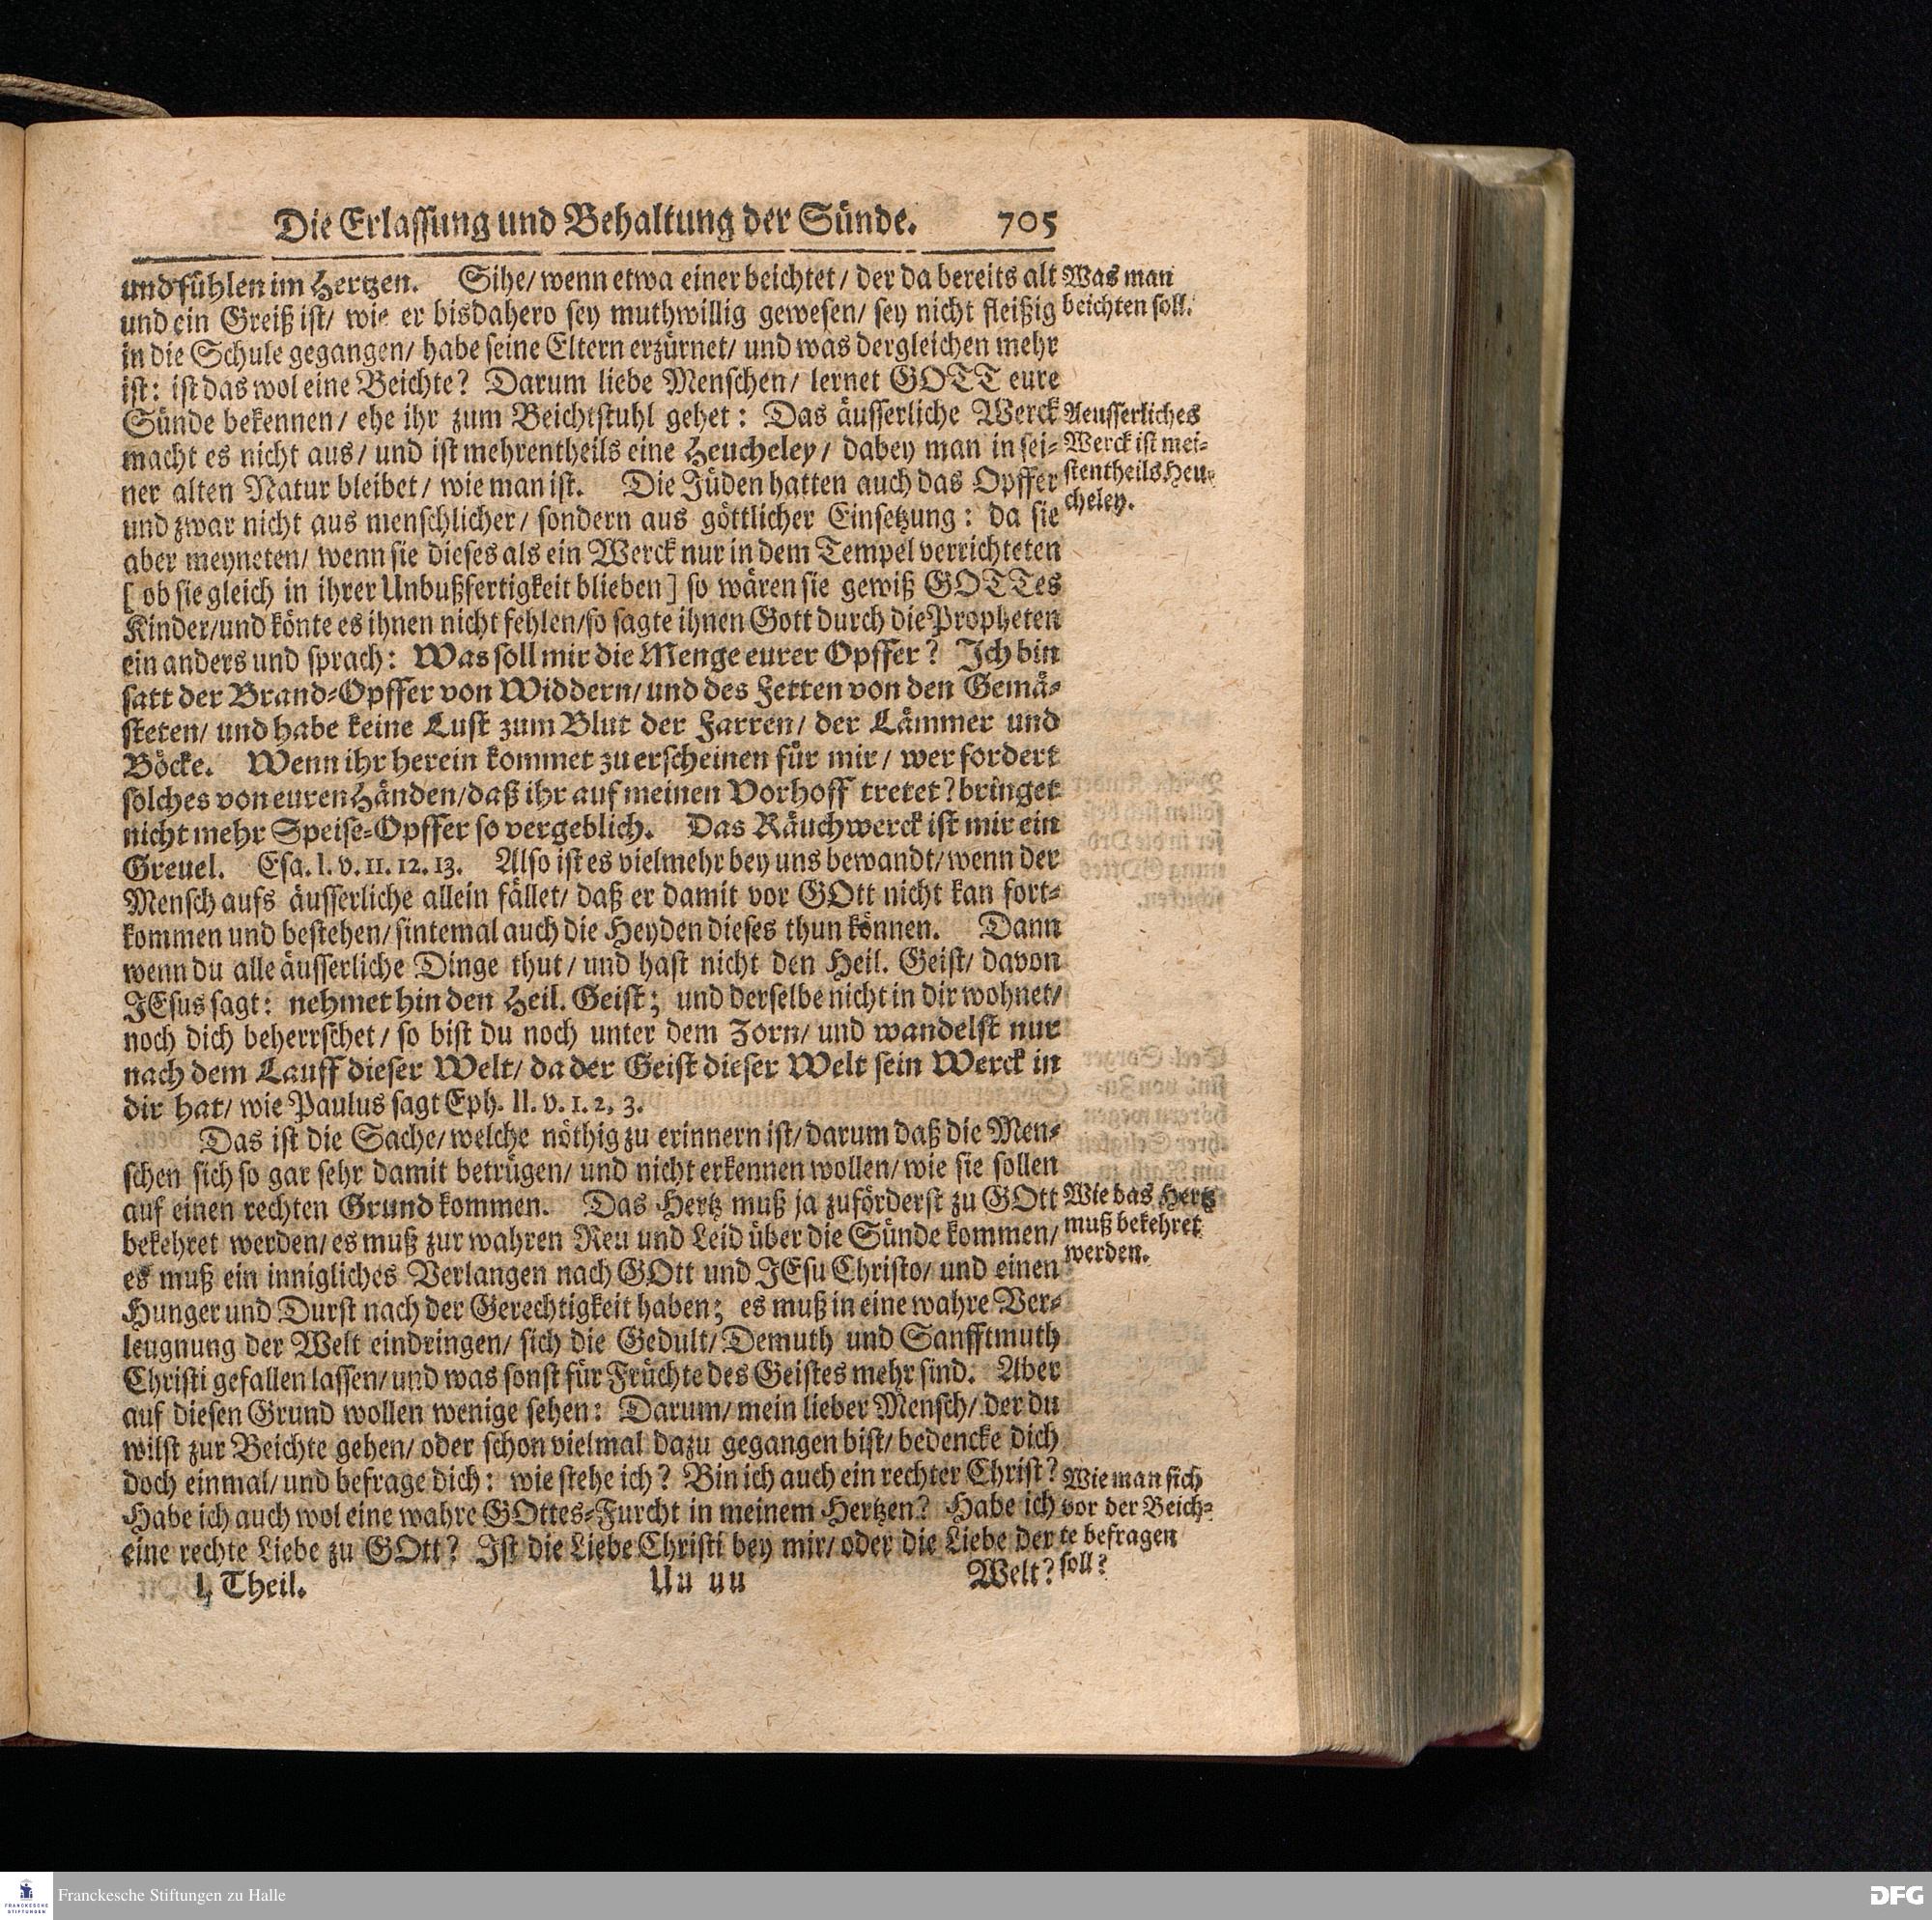 Die Erlassung und Behaltung der Sünde. 705
und fühlen im Hertzen. Sihe/ wenn etwa einer beichtet/ der da bereits alt
und ein Greiß ist/ wie er bisdahero sey muthwillig gewesen/ sey nicht fleißig
in die Schule gegangen/ habe seine Eltern erzürnet/ und was dergleichen mehr
ist: ist das wol eine Beichte? Darum liebe Menschen/ lernet GOTT eure
Sünde bekennen/ ehe ihr zum Beichtstuhl gehet: Das äusserliche Werck
macht es nicht aus/ und ist mehrentheils eine Heucheley/ dabey man in sei-
ner alten Natur bleibet/ wie man ist. Die Jüden hatten auch das Opffer
und zwar nicht aus menschlicher/ sondern aus göttlicher Einsetzung: da sie
aber meyneten/ wenn sie dieses als ein Werck nur in dem Tempel verrichteten
[ ob sie gleich in ihrer Unbußfertigkeit blieben] so wären sie gewiß GOTTes
Kinder/und könte es ihnen nicht fehlen/so sagte ihnen Gott durch die Propheten
ein anders und sprach: Was soll mir die Menge eurer Opffer? Ich bin
satt der Brand-Opffer von Widdern/ und des Fetten von den Gemä-
steten/ und habe keine Lust zum Blut der Farren/ der Lämmer und
Böcke. Wenn ihr herein kommet zu erscheinen für mir/ wer fordert
solches von euren Händen/daß ihr auf meinen Vorhoff tretet? bringet
nicht mehr Speise-Opffer so vergeblich. Das Räuchwerck ist mir ein
Greuel. Esa. I. v. 11. 12. 13. Also ist es vielmehr bey uns bewandt/ wenn der
Mensch aufs äusserliche allein fället/ daß er damit vor GOtt nicht kan fort-
kommen und bestehen/ sintemal auch die Heyden dieses thun können. Dann
wenn du alle äusserliche Dinge thut/ und hast nicht den Heil. Geist/ davon
JEsus sagt: nehmet hin den Heil. Geist; und derselbe nicht in dir wohnet/
noch dich beherrschet/ so bist du noch unter dem Zorn/ und wandelst nur
nach dem Lauff dieser Welt/ da der Geist dieser Welt sein Werck in
dir hat/ wie Paulus sagt Eph. II. v. 1. 2, 3.
Das ist die Sache/ welche nöthig zu erinnern ist/ darum daß die Men-
schen sich so gar sehr damit betrügen/ und nicht erkennen wollen/ wie sie sollen
auf einen rechten Grund kommen. Das Hertz muß ja zuförderst zu GOtt
bekehret werden/ es muß zur wahren Reu und Leid über die Sünde kommen/
es muß ein innigliches Verlangen nach GOtt und JEsu Christo/ und einen
Hunger und Durst nach der Gerechtigkeit haben; es muß in eine wahre Ver-
leugnung der Welt eindringen/ sich die Gedult/ Demuth und Sanfftmuth
Christi gefallen lassen/ und was sonst für Früchte des Geistes mehr sind. Aber
auf diesen Grund wollen wenige sehen: Darum/ mein lieber Mensch/ der du
wilst zur Beichte gehen/ oder schon vielmal dazu gegangen bist/ bedencke dich
doch einmal/ und befrage dich: wie stehe ich? Bin ich auch ein rechter Christ?
Habe ich auch wol eine wahre GOttes-Furcht in meinem Hertzen? Habe ich
eine rechte Liebe zu GOtt? Ist die Liebe Christi bey mir/ oder die Liebe der
I. Theil. Uu uu Welt?
Was man
beichten soll.
Aeusserliches
Werck ist mei-
stentheils Heu-
cheley.
Wie das Hertz
muß bekehret
werden.
Wie man sich
vor der Beich-
te befragen
soll?
FRANCKESCHE
STIFTUNGEN
Franckesche Stiftungen zu Halle
DFG